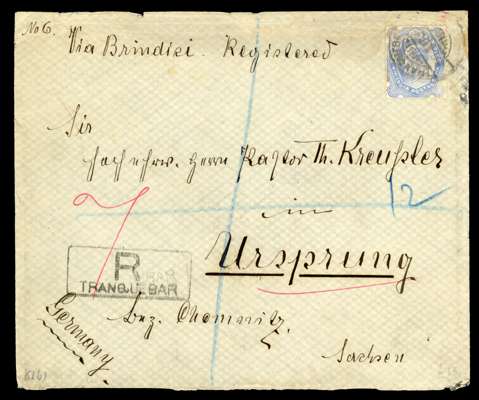 No 6.
Via Brindisi. Registered
Sir
Hochehrw. Herrn Pastor Th. Kreußler
12
in
Ursprung
R
TRANQUEBAR
Germany
bez. Chemnitz.
Sachsen